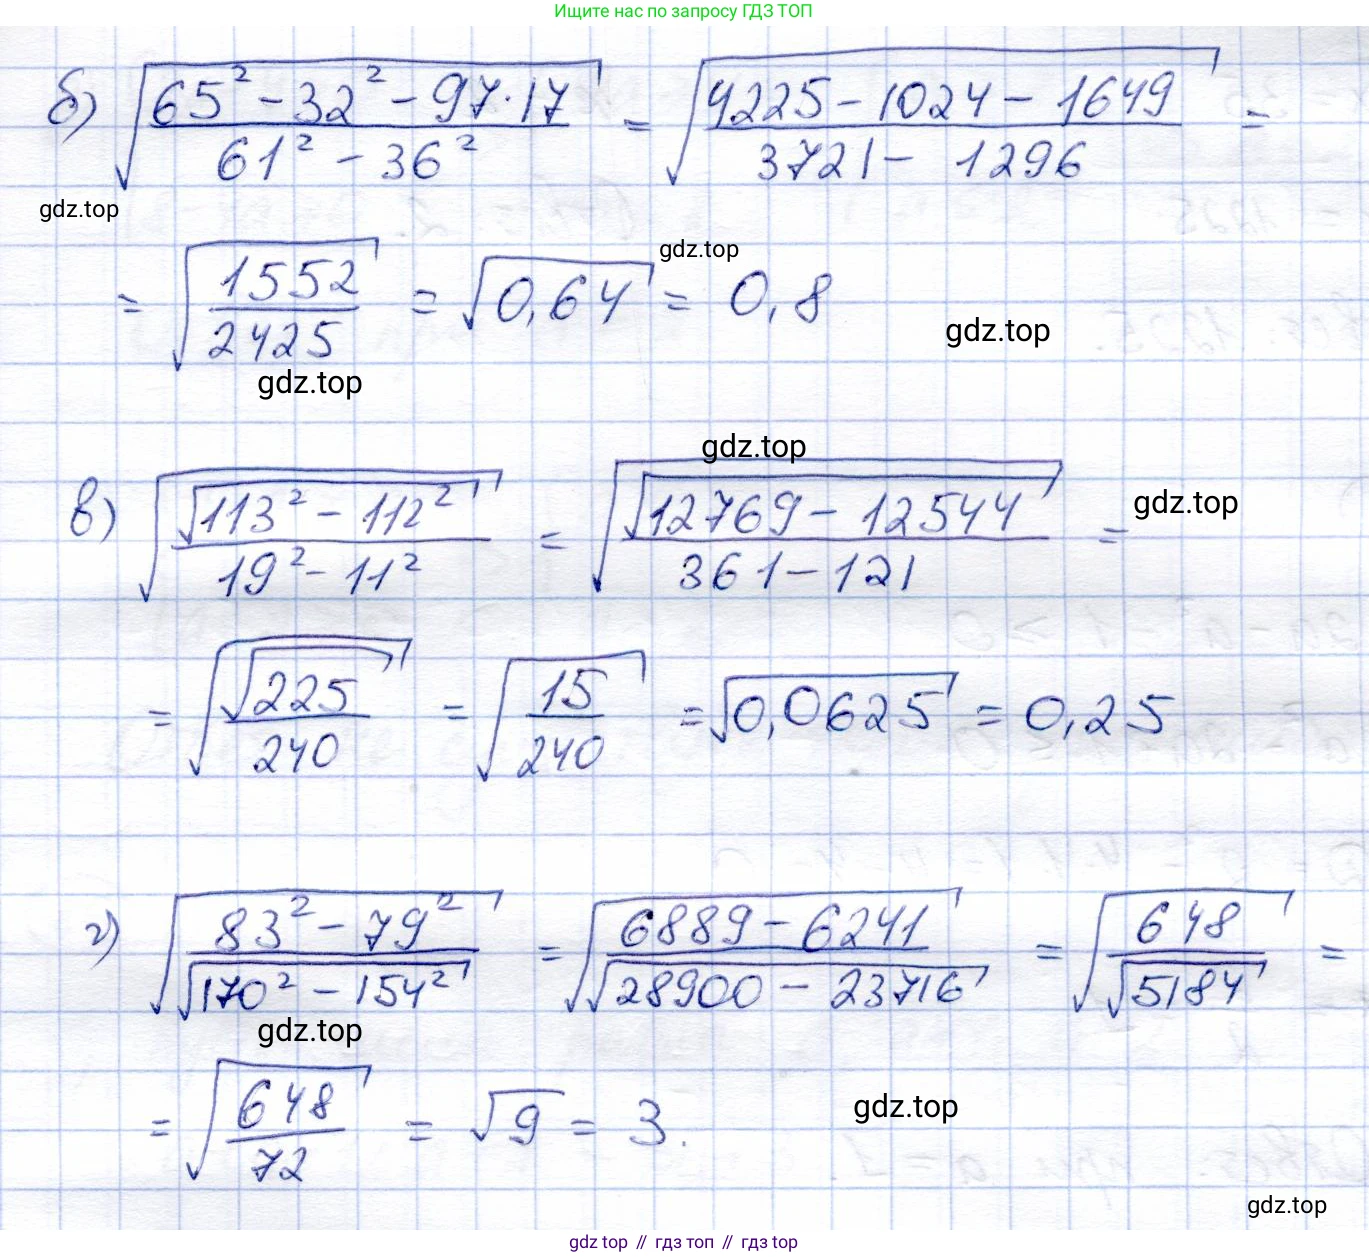 Ищите нас по запросу ГДЗ ТОП
б) √((65² − 32² − 97·17)/(61² − 36²)) = √((4225 − 1024 − 1649)/(3721 − 1296)) =
gdz.top
= √(1552/2425) = √0,64 = 0,8
gdz.top
gdz.top
gdz.top
gdz.top
в) √(√(113² − 112²)/(19² − 11²)) = √(√(12769 − 12544)/(361 − 121)) =
gdz.top
= √(√225/240) = √(15/240) = √0,0625 = 0,25
г) √((83² − 79²)/√(170² − 154²)) = √((6889 − 6241)/√(28900 − 23716)) = √(648/√5184) =
gdz.top
= √(648/72) = √9 = 3.
gdz.top
gdz.top
gdz top // гдз топ // гдз top